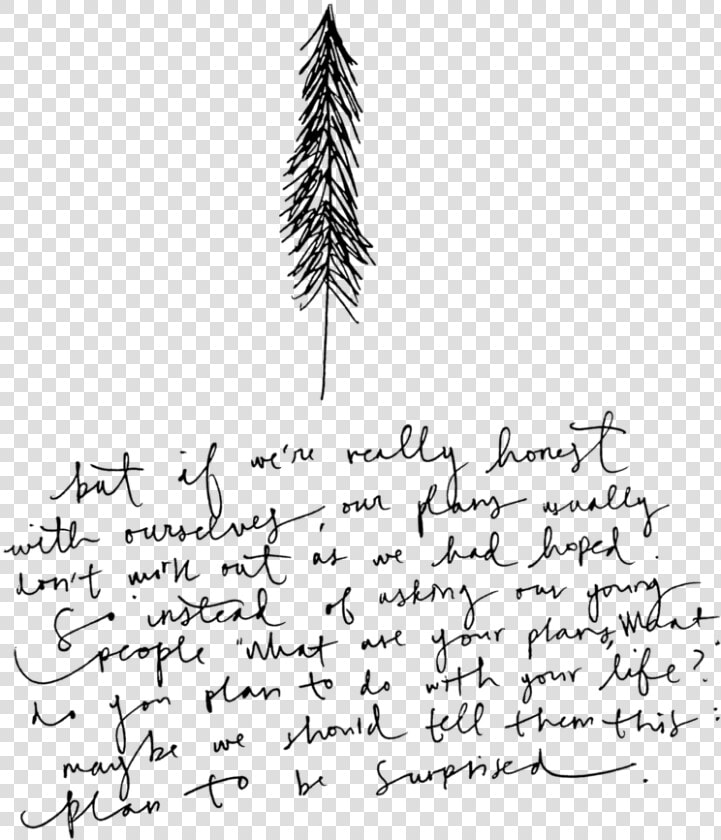 but if we're really honest
with ourselves, our plans usually
don't work out as we had hoped.
So instead of asking our young
people "What are your plans, What
do you plan to do with your life?
maybe we should tell them this:
plan to be surprised.